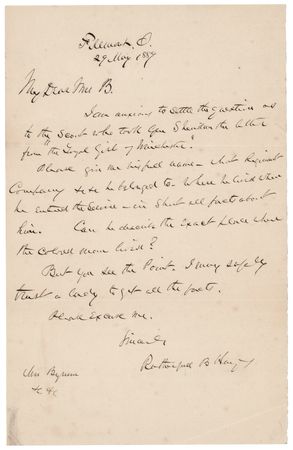 Fremont, O.
29 May 1887
My Dear Mrs B.
I am anxious to settle the question as
to the Scout who took Gen Sheridan the letter
from "the Loyal Girl of Winchester".
Please give me his full name - what Regiment
Company &c &c he belonged to - Where he lived when
he entered the service - in short all facts about
him. Can he describe the exact place where
the colored man lived?
But you see the Point. I may safely
trust a lady to get all the facts.
Please Excuse me.
Sincerely
Rutherford B Hayes
Mrs
&c &c